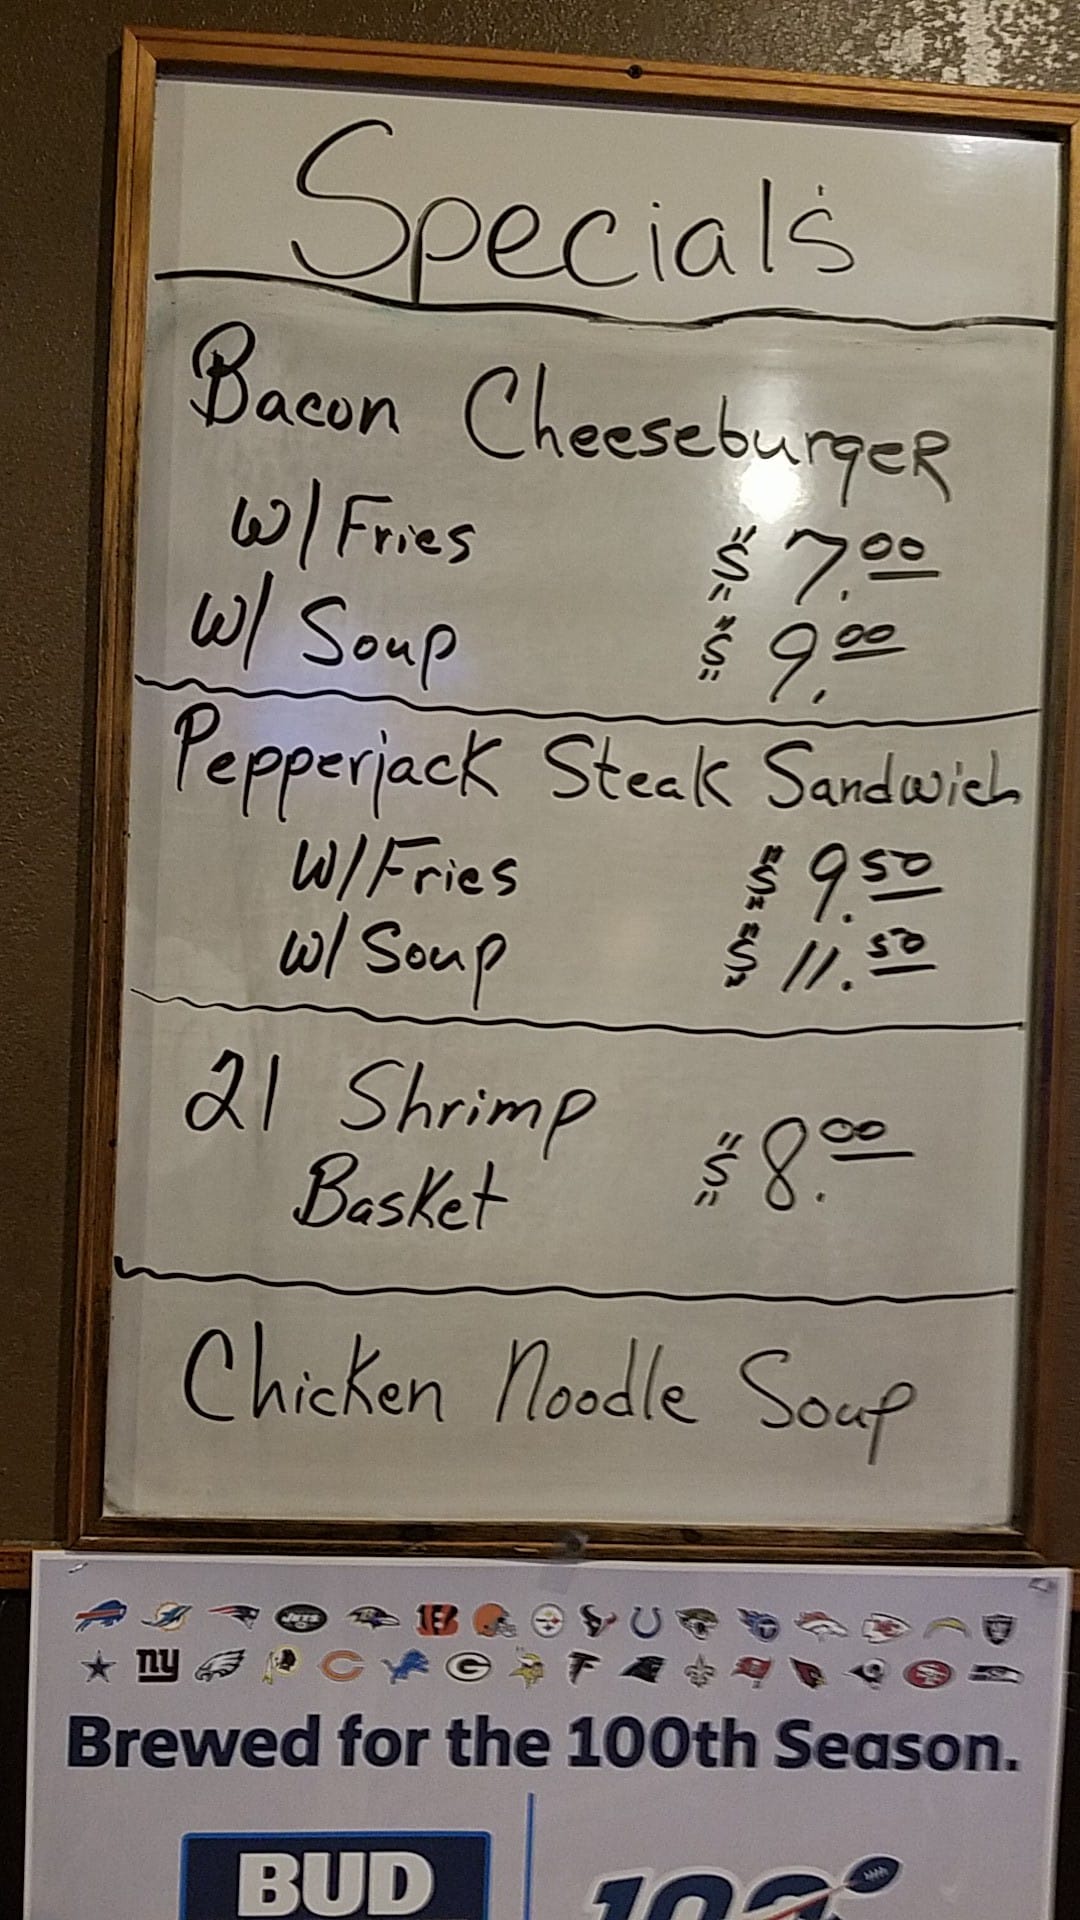 Specials
Bacon Cheeseburger
W/Fries $7.00
W/ Soup $9.00
Pepperjack Steak Sandwich
W/Fries $9.50
W/ Soup $11.50
21 Shrimp
Basket $8.00
Chicken Noodle Soup
JETS
NY
G
Brewed for the 100th Season.
BUD
100